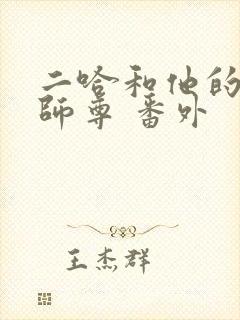 二哈和他的
師尊 番外
王杰群